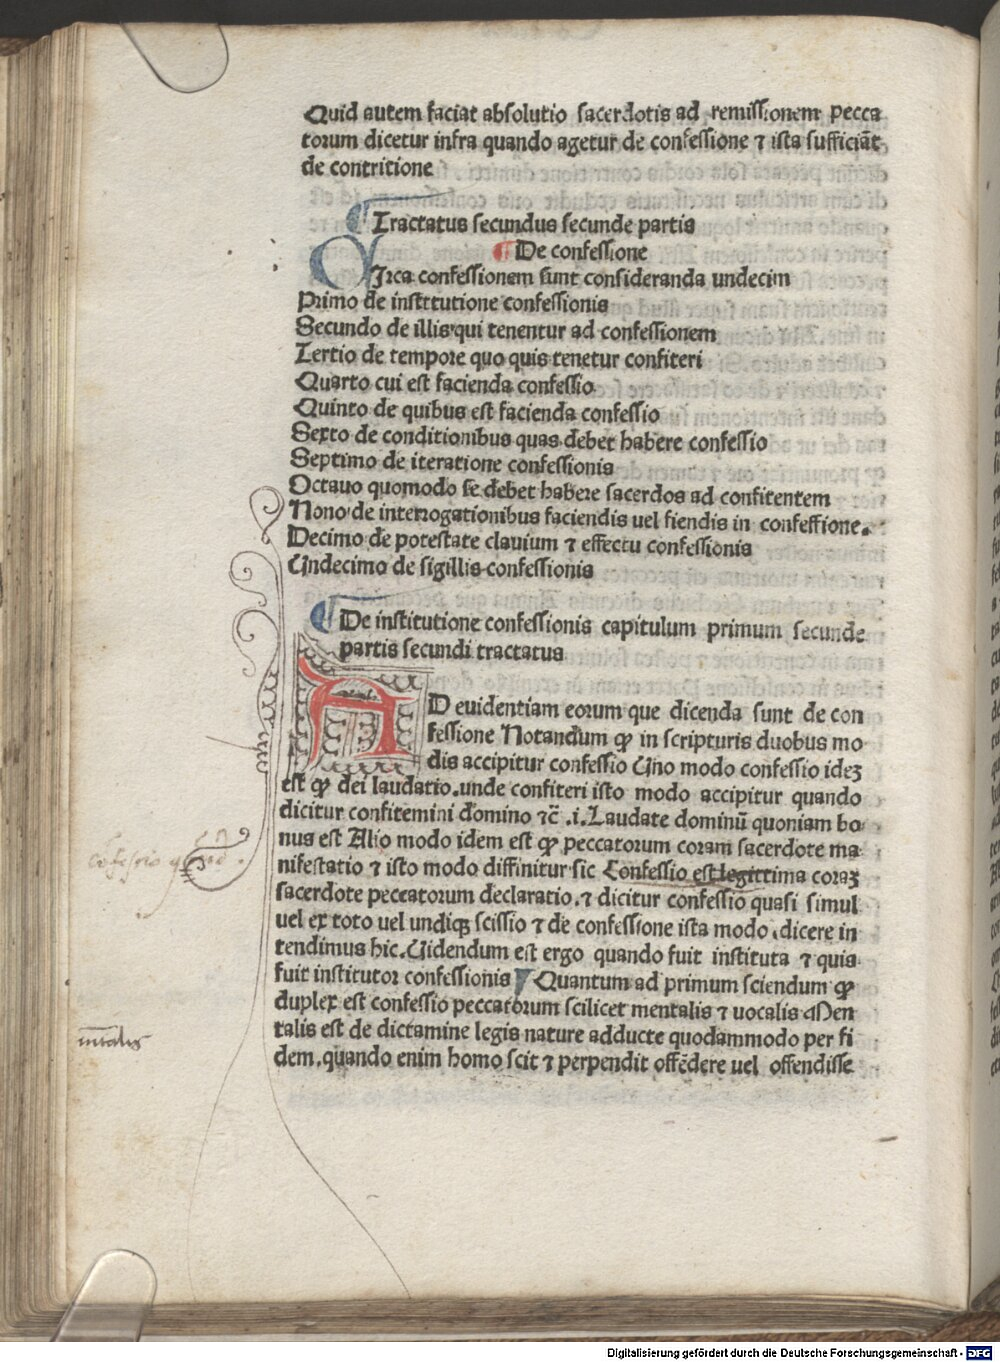 Quid autem faciat absolutio sacerdotis ad remissionem pecca
torum dicetur infra quando agetur de confessione ⁊ ista sufficiāt
de contritione
¶ Tractatus secundus secunde partis
¶ De confessione
CIrca confessionem sunt consideranda undecim
Primo de institutione confessionis
Secundo de illis qui tenentur ad confessionem
Tertio de tempore quo quis tenetur confiteri
Quarto cui est facienda confessio
Quinto de quibus est facienda confessio
Sexto de conditionibus quas debet habere confessio
Septimo de iteratione confessionis
Octauo quomodo se debet habere sacerdos ad confitentem
Nono de interrogationibus faciendis uel fiendis in confessione.
Decimo de potestate clauium ⁊ effectu confessionis
Undecimo de sigillis confessionis
¶ De institutione confessionis capitulum primum secunde
partis secundi tractatus
AD euidentiam eorum que dicenda sunt de con
fessione Notandum ꝙ in scripturis duobus mo
dis accipitur confessio Uno modo confessio ideꝫ
est ꝙ dei laudatio.unde confiteri isto modo accipitur quando
dicitur confitemini domino ⁊c̄ .i.Laudate dominū quoniam bo
nus est Alio modo idem est ꝙ peccatorum coram sacerdote ma
nifestatio ⁊ isto modo diffinitur sic Confessio est legittima coraꝫ
sacerdote peccatorum declaratio.⁊ dicitur confessio quasi simul
uel ex toto uel undiqꝫ scissio ⁊ de confessione ista modo dicere in
tendimus hic.Uidendum est ergo quando fuit instituta ⁊ quis
fuit institutor confessionis ¶ Quantum ad primum sciendum ꝙ
duplex est confessio peccatorum scilicet mentalis ⁊ uocalis Men
talis est de dictamine legis nature adducte quodammodo per fi
dem.quando enim homo scit ⁊ perpendit offēdere uel offendisse
Digitalisierung gefördert durch die Deutsche Forschungsgemeinschaft - DFG